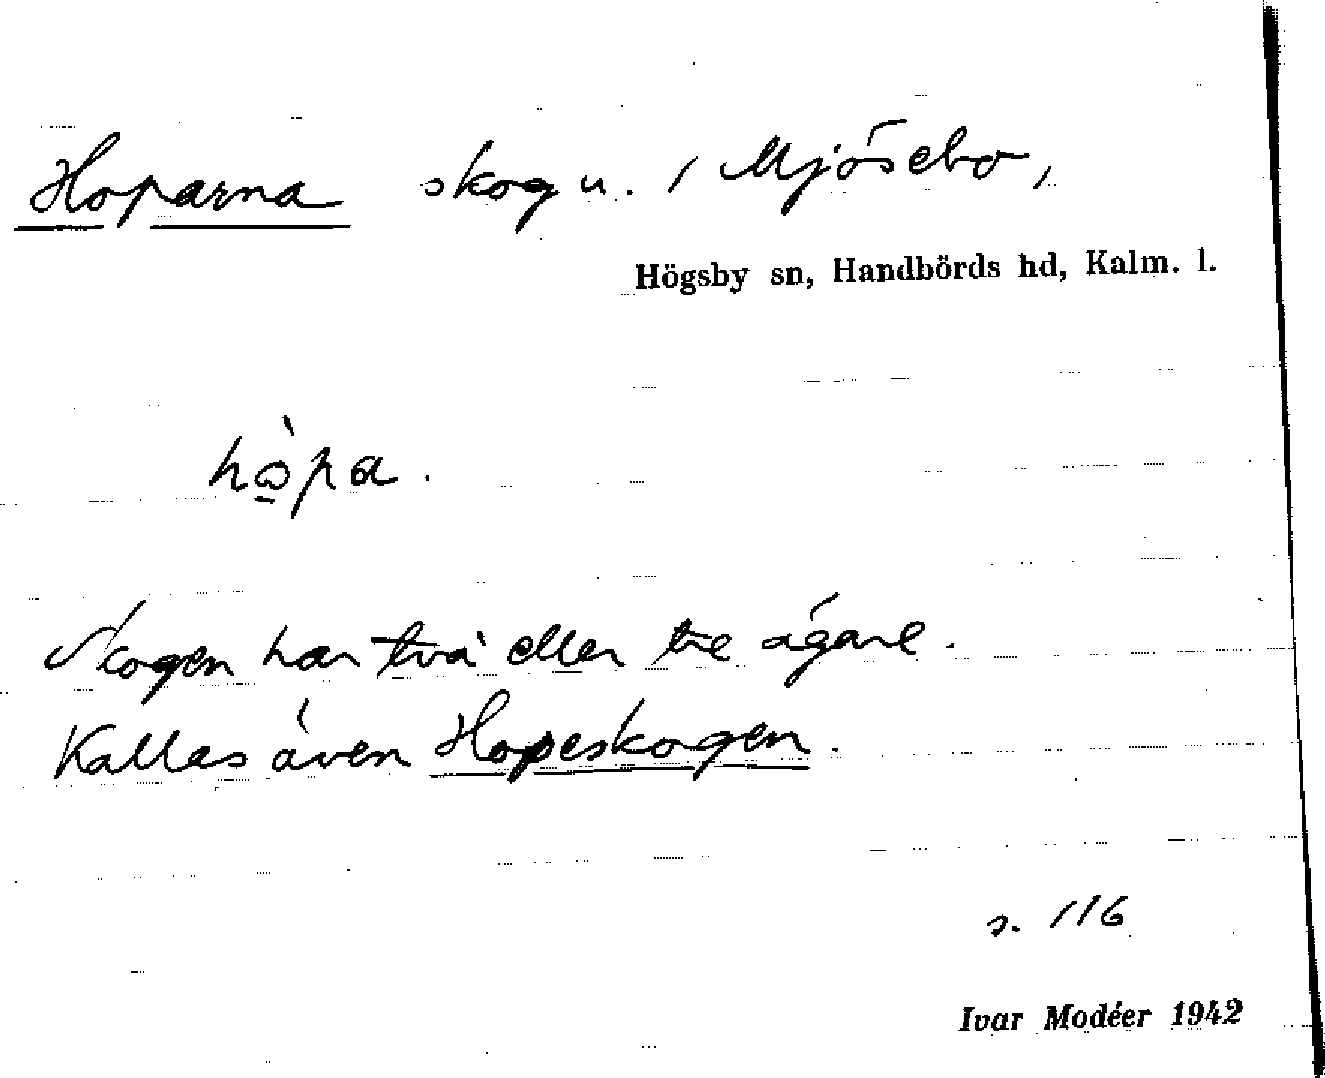 Hoparna skog u. / Mjösebo,
Högsby sn, Handbörds hd, Kalm. l.
hò̲pa.
Skogen har två eller tre ägare.
Kallas även Hopeskogen.
s. 116
Ivar Modéer 1942